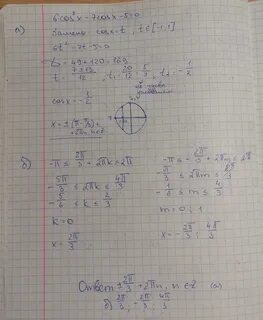 а) 6cos²x-7cosx-5=0
Замена cosx=t, t∈[-1;1]
6t²-7t-5=0
D=49+120=169
t=7±13/12, t₁=20/12=5/3, t₂=-1/2
cosx=-1/2
x=±(π-π/3)+
+2πn, n∈Z
б) -π≤2π/3+2πk≤2π
-5π/3≤2πk≤4π/3
-5/6≤k≤2/3
k=0
x=2π/3
-π≤-2π/3+2πm≤2π
-π/3≤2πm≤8π/3
-1/6≤m≤4/3
m=0;1
x=-2π/3;4π/3
Ответ ±2π/3+2πn, n∈Z (а)
б) 2π/3;-2π/3;4π/3